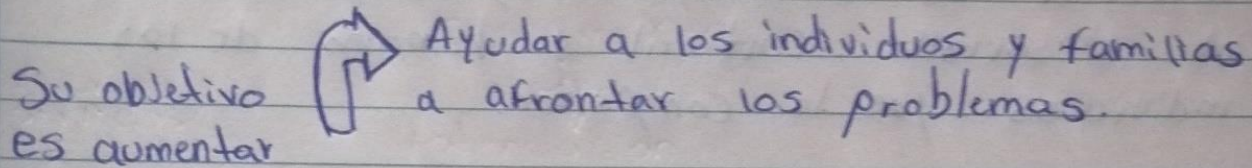 Su objetivo
es aumentar
Ayudar a los individuos y familias
a afrontar los problemas.